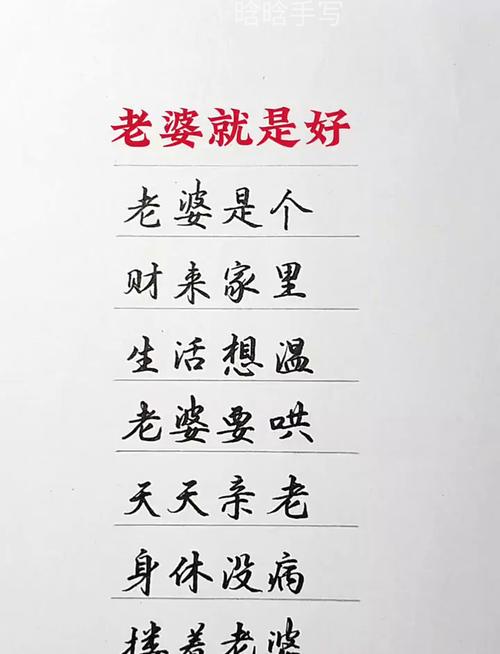 晗晗手写
老婆就是好
老婆是个
财来家里
生活想温
老婆要哄
天天亲老
身休没病
搂着老婆